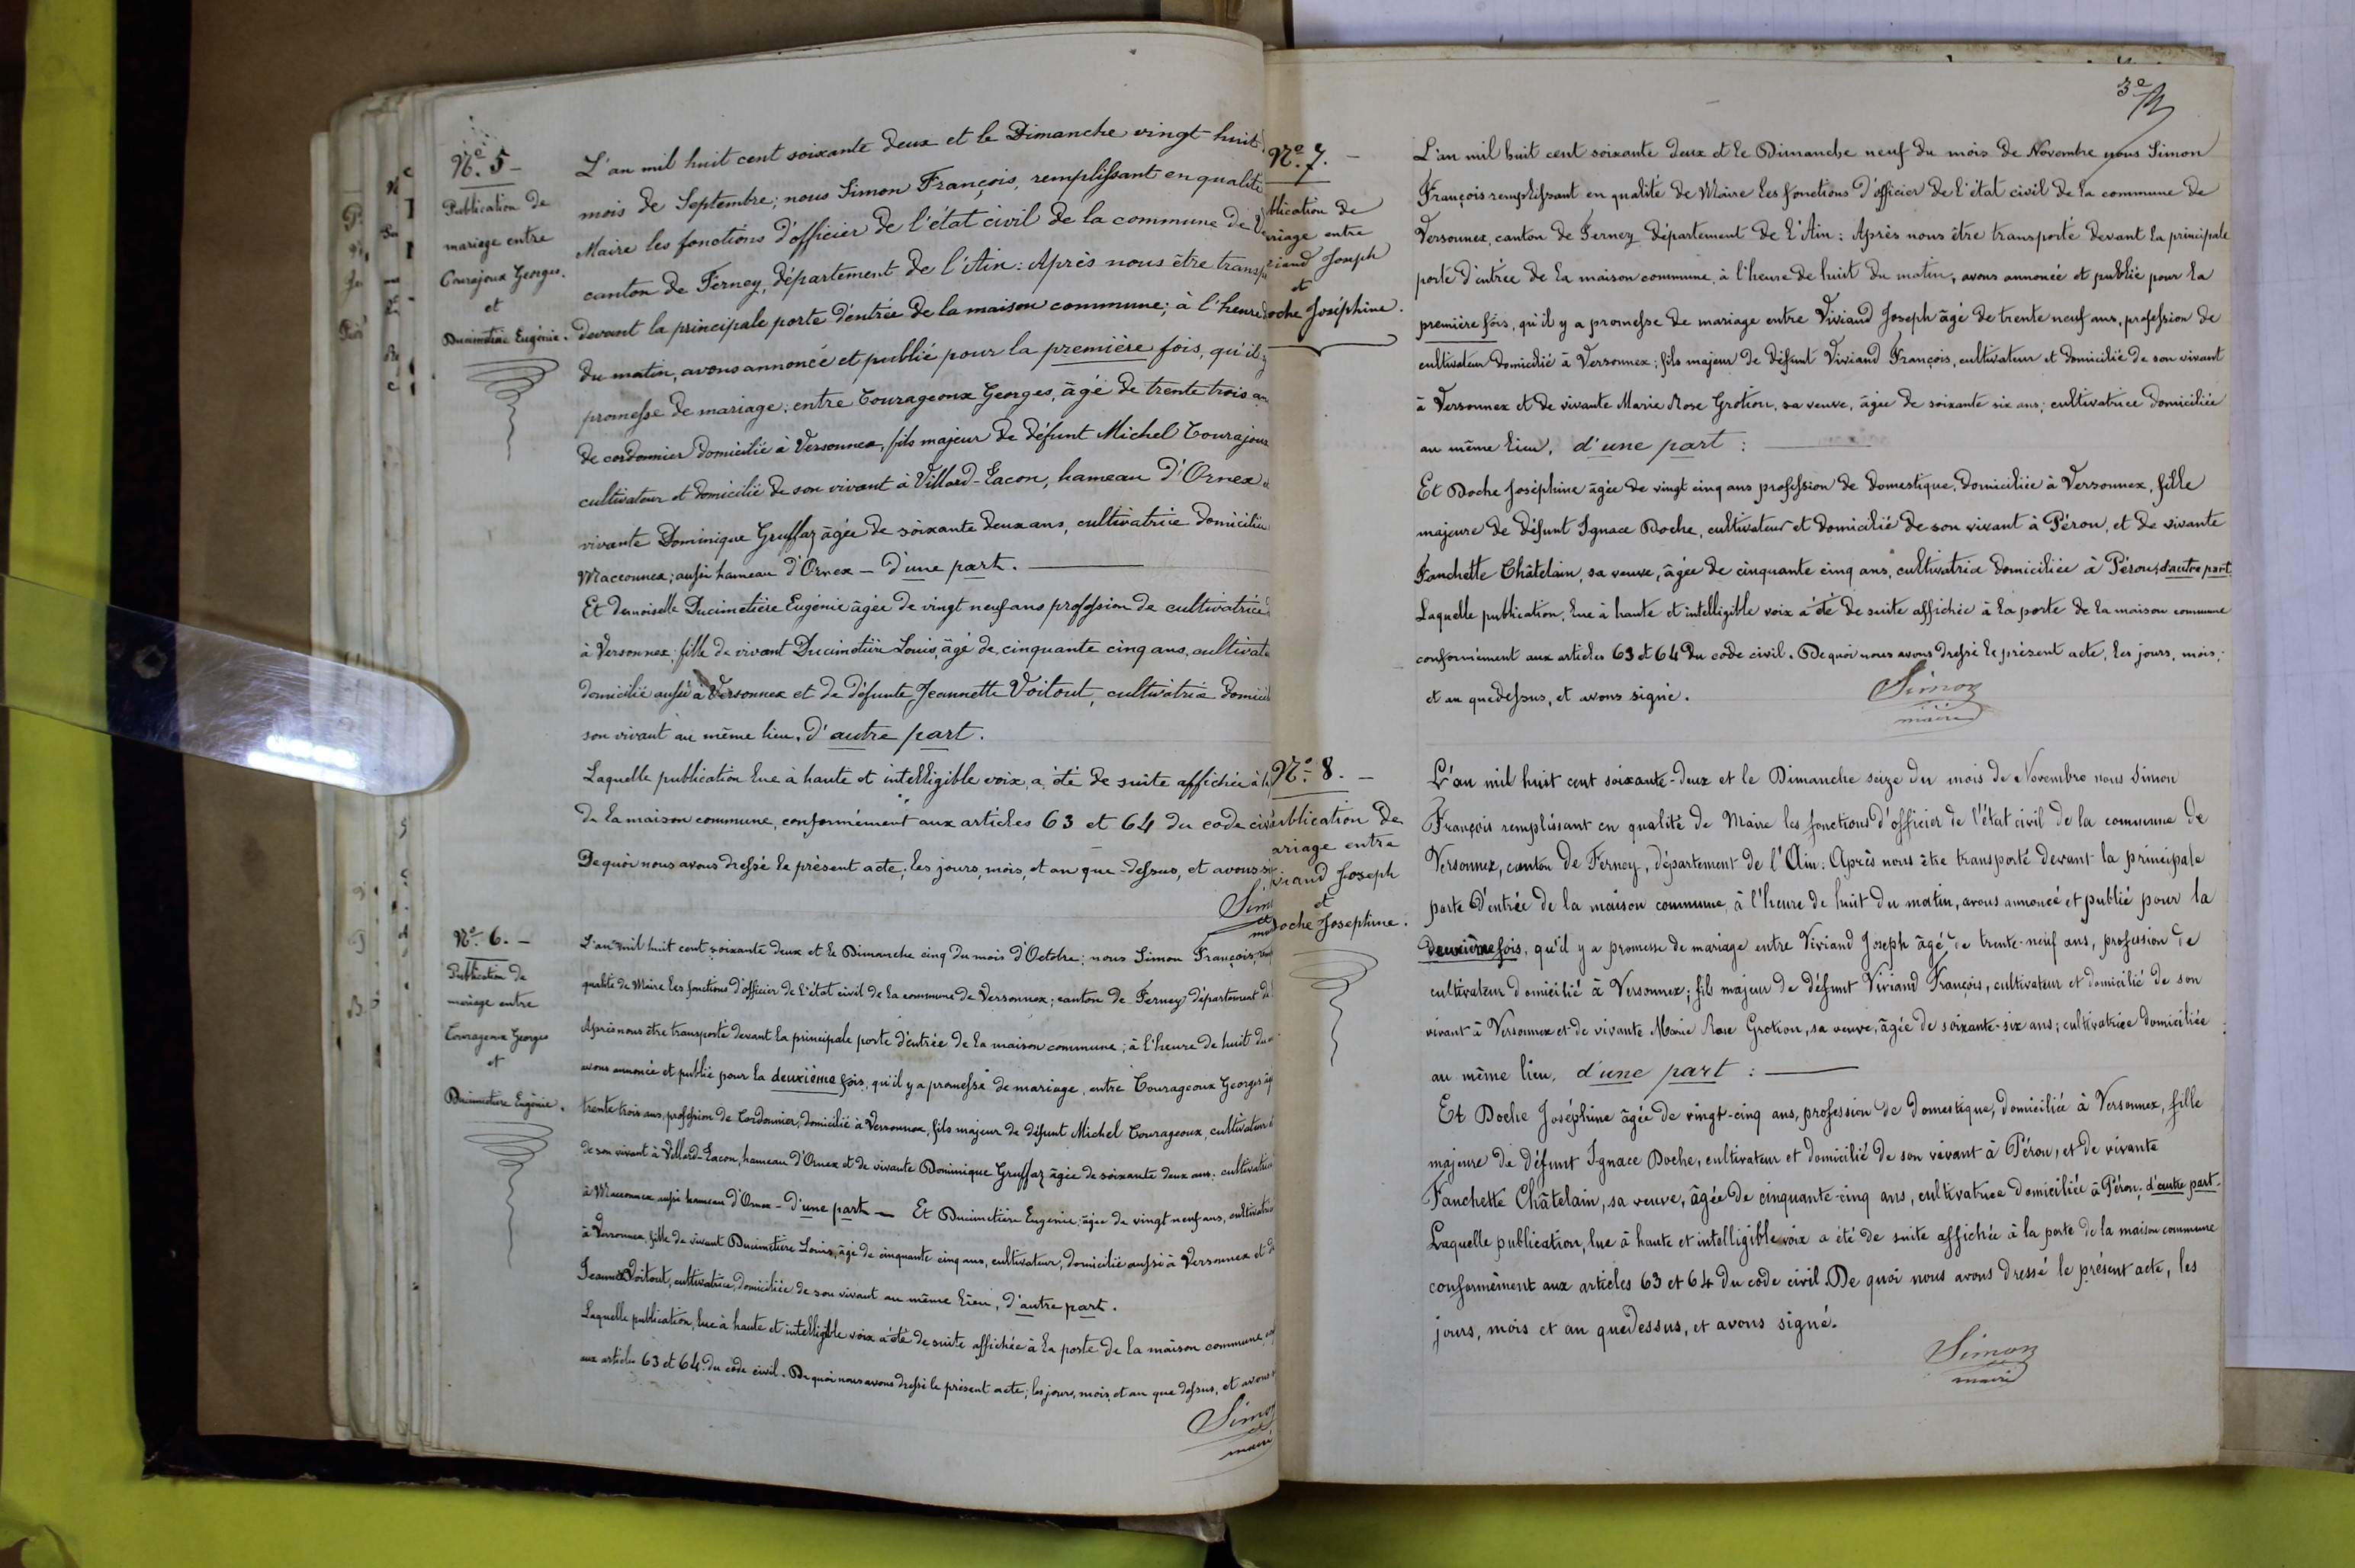 Nº. 5 -
Publication de
mariage entre
Courajoux Georges.
et
Ducimetière Eugénie.
L'an mil huit cent soixante deux et le Dimanche vingt huit
mois de Septembre; nous Simon François, remplissant en qualité
Maire les fonctions d'officier de l'état civil de la commune de
canton de Ferney, département de l'Ain: Après nous être
devant la principale porte d'entrée de la maison commune; à l'heure
du matin, avons annoncée et publié pour la première fois, qu'il y
promesse de mariage; entre Courageoux Georges, âgé de trente trois
de cordonnier domicilié à Versonnex, fils majeur de défunt Michel Courajoux
cultivateur et domicilié de son vivant à Villard-Lacon, hameau d'Ornex
vivante Dominique Gruffaz âgée de soixante deux ans, cultivatrice domiciliée
Macconnex; aussi hameau d'Ornex - d'une part.
Et demoiselle Ducimetière Eugénie âgée de vingt neuf ans profession de cultivatrice
à Versonnex; fille de vivant Ducimetière Louis, âgé de cinquante cinq ans,
domicilié aussi à Versonnex et de défunte Jeannette Voitout, cultivatrice
son vivant au même lieu, d'autre part.
Laquelle publication lue à haute et intelligible voix, a été de suite affichée à
de la maison commune, conformément aux articles 63 et 64 du code
De quoi nous avons dressé le présent acte; les jours, mois, et an que-dessus, et avons
Nº. 6. -
Publication de
mariage entre
Courageoux Georges
et
Ducimetière Eugénie.
L'an mil huit cent soixante deux et le Dimanche cinq du mois d'Octobre; nous Simon François,
qualité de Maire les fonctions d'officier de l'état civil de la commune de Versonnex; canton de Ferney, département de
Après nous être transporté devant la principale porte d'entrée de la maison commune; à l'heure de huit du
avons annoncé et publié pour la deuxième fois, qu'il y a promesse de mariage, entre Courageoux Georges
trente trois ans, profession de Cordonnier, domicilié à Versonnex, fils majeur de défunt Michel Courageoux, cultivateur
de son vivant à Villard-Lacon, hameau d'Ornex et de vivante Dominique Gruffaz âgée de soixante deux ans, cultivatrice
à Macconnex aussi hameau d'Ornex - d'une part - Et Ducimetière Eugénie; âgée de vingt neuf ans, cultivatrice
à Versonnex, fille de vivant Ducimetière Louis, âgé de cinquante cinq ans, cultivateur, domicilié aussi à Versonnex et
Jeannette Voitout, cultivatrice, domiciliée de son vivant au même lieu, d'autre part.
Laquelle publication, lue à haute et intelligible voix a été de suite affichée à la porte de la maison commune,
aux articles 63 et 64 du code civil. De quoi nous avons dressé le présent acte; les jours, mois, et an que dessus, et avons
Simon
maire
3e
Nº. 7. -
blication de
riage entre
iand Joseph
et
oche Joséphine.
L'an mil huit cent soixante deux et le Dimanche neuf du mois de Novembre nous Simon
François remplissant en qualité de Maire les fonctions d'officier de l'état civil de la commune de
Versonnex, canton de Ferney département de l'Ain: Après nous être transporté devant la principale
porte d'entrée de la maison commune, à l'heure de huit du matin, avons annoncé et publié pour la
première fois, qu'il y a promesse de mariage entre Viviand Joseph âgé de trente neuf ans, profession de
cultivateur domicilié à Versonnex; fils majeur de défunt Viviand François, cultivateur et domicilié de son vivant
à Versonnex et de vivante Marie Rose Grotion, sa veuve, âgée de soixante six ans; cultivatrice domiciliée
au même lieu, d'une part:
Et Doche Joséphine âgée de vingt cinq ans profession de domestique, domiciliée à Versonnex, fille
majeure de défunt Ignace Doche, cultivateur et domicilié de son vivant à Péron, et de vivante
Fanchette Châtelain, sa veuve, âgée de cinquante cinq ans, cultivatrice domiciliée à Péron, d'autre part.
Laquelle publication, lue à haute et intelligible voix a été de suite affichée à la porte de la maison commune
conformément aux articles 63 et 64 du code civil. De quoi nous avons dressé le présent acte, les jours, mois,
et an quedessus, et avons signé.
Simon
maire
Nº. 8. -
ublication de
ariage entre
viand Joseph
et
oche Josephine.
L'an mil huit cent soixante-deux et le Dimanche seize du mois de Novembre nous Simon
François remplissant en qualité de Maire les fonctions d'officier de l'état civil de la commune de
Versonnex, canton de Ferney, département de l'Ain: Après nous être transporté devant la principale
porte d'entrée de la maison commune, à l'heure de huit du matin, avons annoncé et publié pour la
deuxième fois, qu'il y a promesse de mariage entre Viviand Joseph âgé de trente-neuf ans, profession de
cultivateur domicilié à Versonnex; fils majeur de défunt Viviand François, cultivateur et domicilié de son
vivant à Versonnex et de vivante Marie Rose Grotion, sa veuve, âgée de soixante-six ans; cultivatrice domiciliée
au même lieu, d'une part:
Et Doche Joséphine âgée de vingt-cinq ans, profession de domestique, domiciliée à Versonnex, fille
majeure de défunt Ignace Doche, cultivateur et domicilié de son vivant à Péron, et de vivante
Fanchette Châtelain, sa veuve, âgée de cinquante-cinq ans, cultivatrice domiciliée à Péron; d'autre part.
Laquelle publication, lue à haute et intelligible voix a été de suite affichée à la porte de la maison commune
conformément aux articles 63 et 64 du code civil. De quoi nous avons dressé le présent acte, les
jours, mois et an quedessus, et avons signé.
Simon
maire